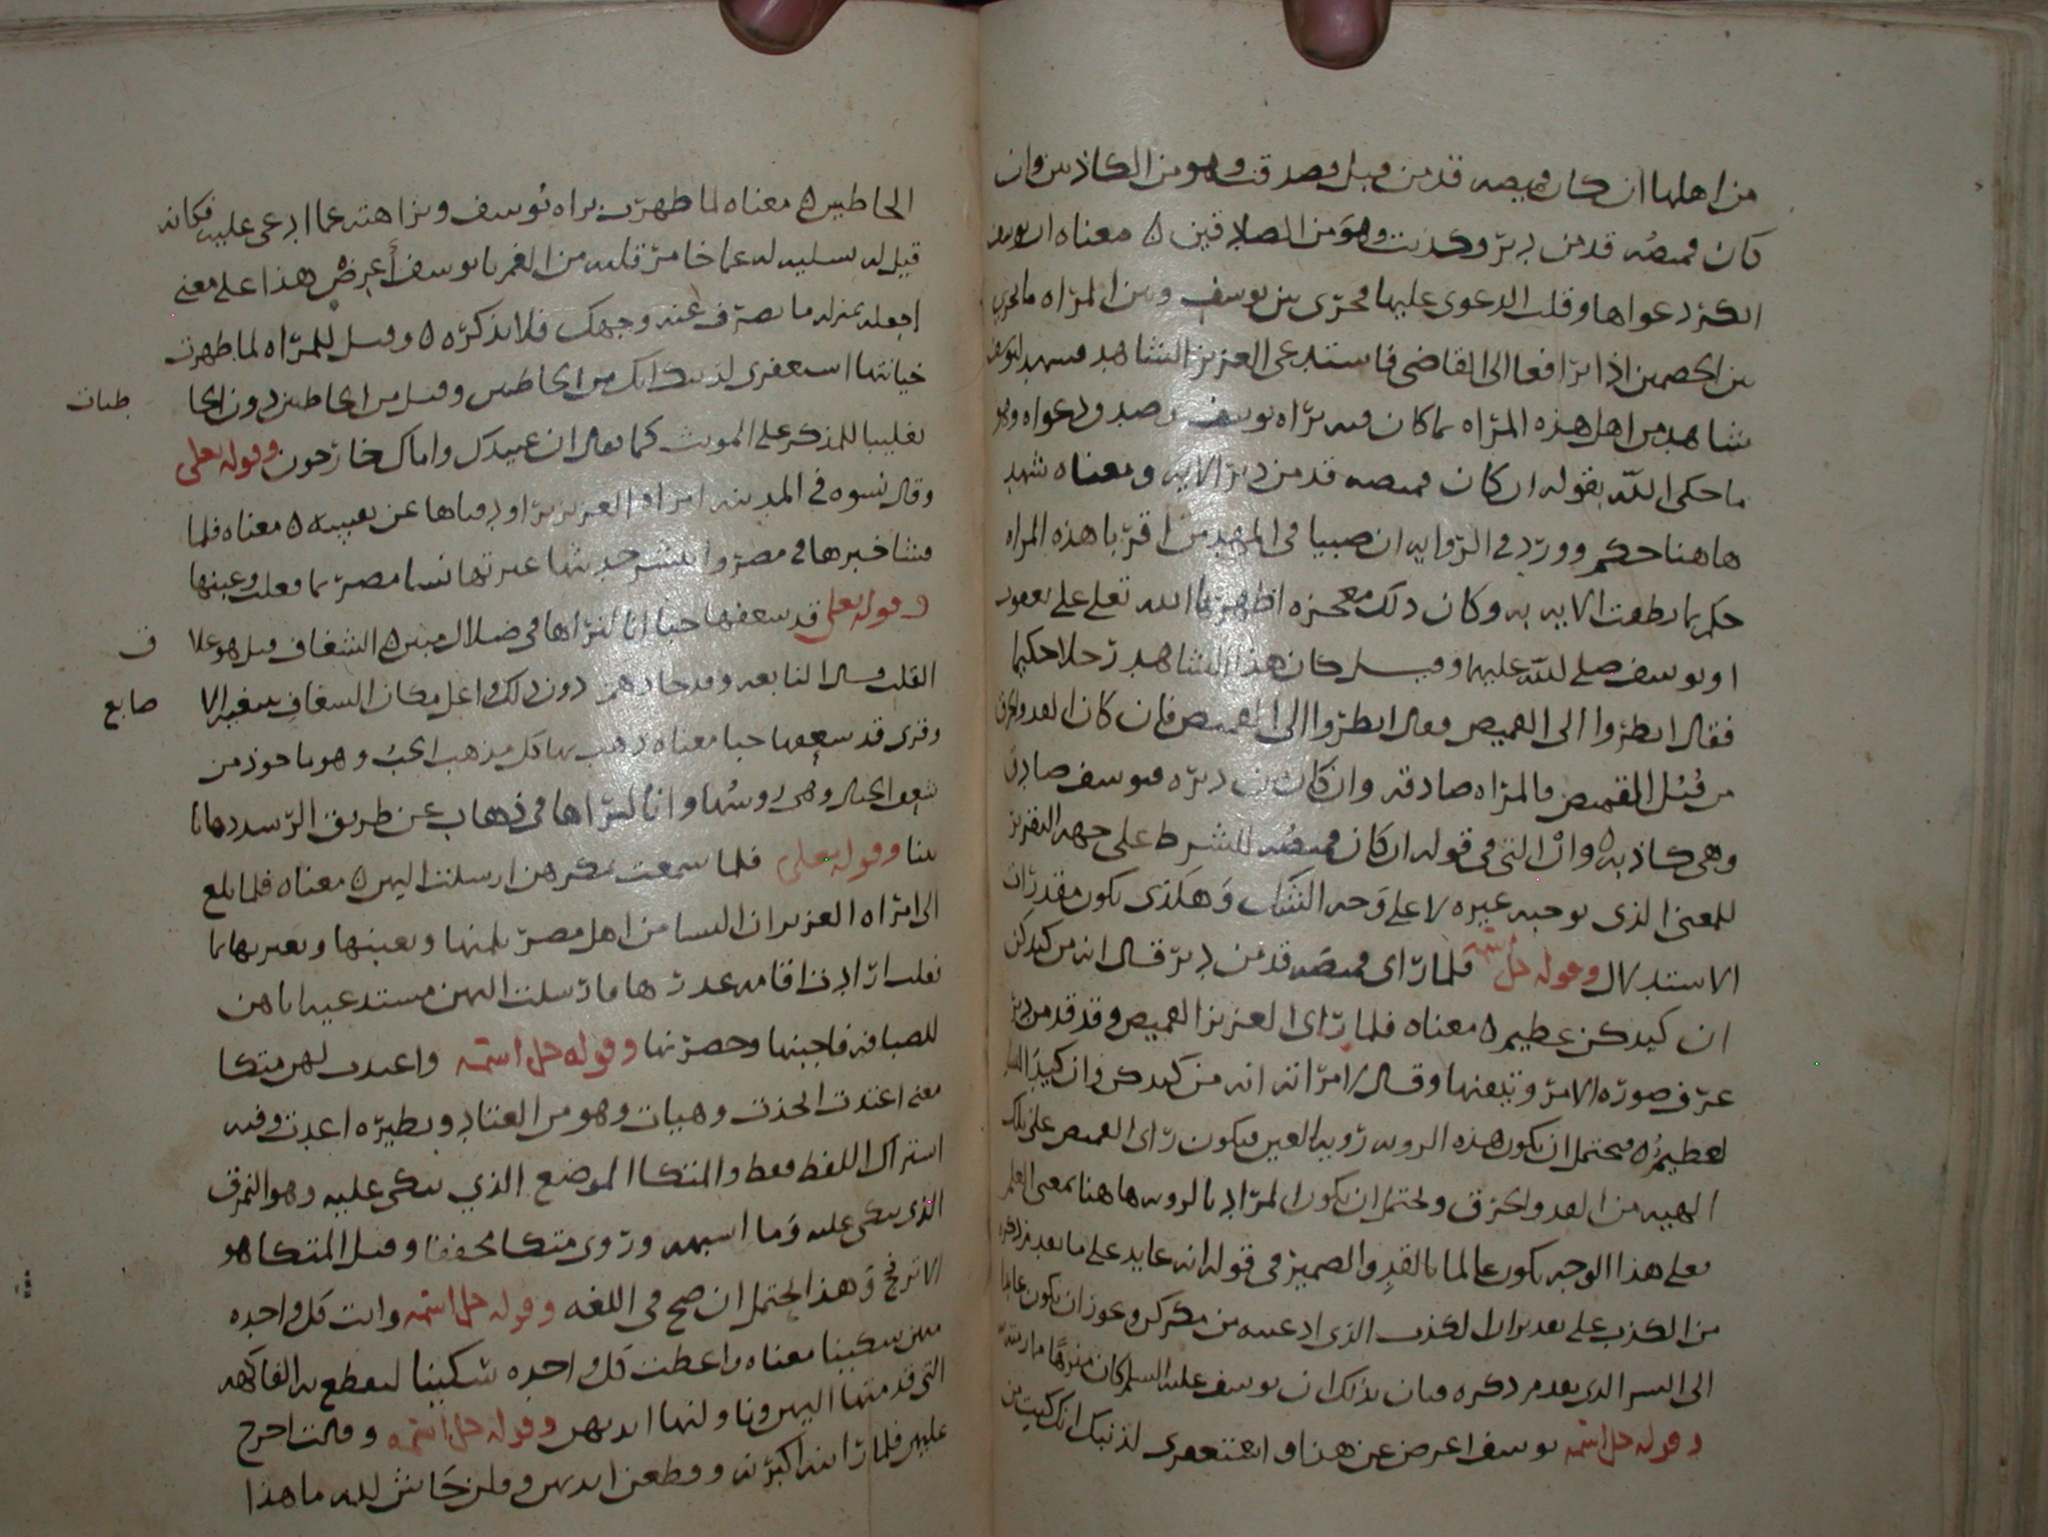 من اهلها ان كان قميصه قد من قبل فصدقت وهو من الكاذبين وان
كان قميصُه قد من دبر وكذبت وهوَ من الصادقين ه معناه ان يوسف
انكر دعواها وقلب الدعوى عليها فجرى بين يوسف وبين المراه ما يجري
بين الخصمين اذا ترافعا الى القاضي فاستدعى العزيز الشاهد فشهد ليوسف
شاهد من اهل هذه المراه بما كان فيه براه يوسف وصدق دعواه وهو
ما حكى اللّه بقوله ان كان قميصه قد من دبر الايه ومعناه شهد
هاهنا حكم وورد في الروايه ان صبيا في المهد من اقربا هذه المراه
حكم بما نطقت الايه به وكان ذلك معجزه اظهرها الله تعلى على يعقوب
او يوسف صلى للّه عليهما وقيل كان هذا الشاهد رجلا حكيما
فقال انظروا الى القميص فقال انظروا الى القميص فان كان القد والخرق
من قُبُل القميص فالمراه صادقه وان كان من دبره فيوسف صادق
وهي كاذبه ه وانْ التي في قوله ان كان قميصُه للشرط على جهه التقرير
للمعنى الذى يوجبه غيره لا على وَجه الشك وَهَكذى يكون مقدرات
الاستدلال وقوله جل اسمه فلما راى قميصَه قد من دبر قال انه من كيدكن
ان كيدكن عظيم ه معناه فلما راى العزيز القميص وقد قد من دبر
عرف صوره الامر وتيقنها وقال لامراته انه من كيدكن وان كيدَ النسا
لعظيمُ ه فيحتمل ان يكون هذه الرويه رُويه العين فيكون راى القميص على تلك
الهيه من القد والخرق ويحتمل ان يكون المراد بالرويه هاهنا بمعنى العلم
فعلى هذا الوجه يكون عالما بالقدِ والضمير في قوله انه عايد على ما تقدم ذكره
من الكذب على تقدير ان الكذب الذي ادعيته من مكركن ويجوز ان يكون عايدا
الى السر الذي تقدم ذكره فبان بذلك ان يوسف عليه السلم كان منزهًا
وقوله جل اسمه يوسف اعرض عن هذا واستغفرى لذنبك انك كنت من
الخاطين ه معناه لما ظهرت براه يُوسف ونزاهته عما ادعى عليه فكانه
قيل له تسليه له عما خامر قلبه من الغم يا يوسف أَعرضْ هذا على معنى
اجعله بمنزله ما يصرف عنه وجهك فلا تذكره ه وقيل للمراه لما ظهرت
خيانتها استغفرى لذنبك انك من الخاطين وقيل من الخاطين دون الخا
طيات
تغليبا للمذكر على المونث كما يقال ان عبيدك واماك خارجون وقوله تعلى
وقال نسوه في المدينه امراه العزيز تراود فتاها عن نفسه ه معناه فلما
فشا خبرها في مصر وانتشر حديثها عيرتها نسا مصر بما فعلت وعبنها
وقوله تعلى قد شغفها حبا انا لنراها في ضلال مبين ه الشغاف قيل هو غلا
ف
القلب قال النابغه وقد حال هم دون ذلك داخل مكان الشغاف تبتغيه الا
صابع
وقرى قد شعفها حبا معناه ذهب بها كل مذهب الحبُ وهو ماخوذ من
شعف الجبال وهي روسُها وانا لنراها في ذهاب عن طريق الرشد ذهابا
بينا وقوله تعلى فلما سمعت بمكرهن ارسلت اليهن ه معناه فلما بلغ
الى امراه العزيز ان النسا من اهل مصر يلمنها ويعبنها ويعيرنها بما
فعلت ارادت اقامه عذرها فارسلت اليهن مستدعيه اياهن
للضيافه فاجبنها وحضرنها وقوله جل اسمه واعتدت لهن متكا
معنى اعتدت اتخذت وهيات وهو من العتاد ونظيره اعدت وفيه
اشتراك اللفظ فقط والمتكا الموضع الذي يتكى عليه وهو النمرق
الذي يتكى عليه وَما اشبهه ورُوى متكا مخففا وقيل المتكا هو
الاترنج وَهذا يحتمل ان صح في اللغه وقوله جل اسمه واتت كل واحده
منهن سكينا معناه واعطت كل واحده سكينا لتقطع به الفاكهه
التي قدمتها اليهن وناولنها ايديهن وقوله جل اسمه وقالت اخرج
عليهن فلما راينه اكبرنه وقطعن ايديهن وقلن حَاش لله ما هذا